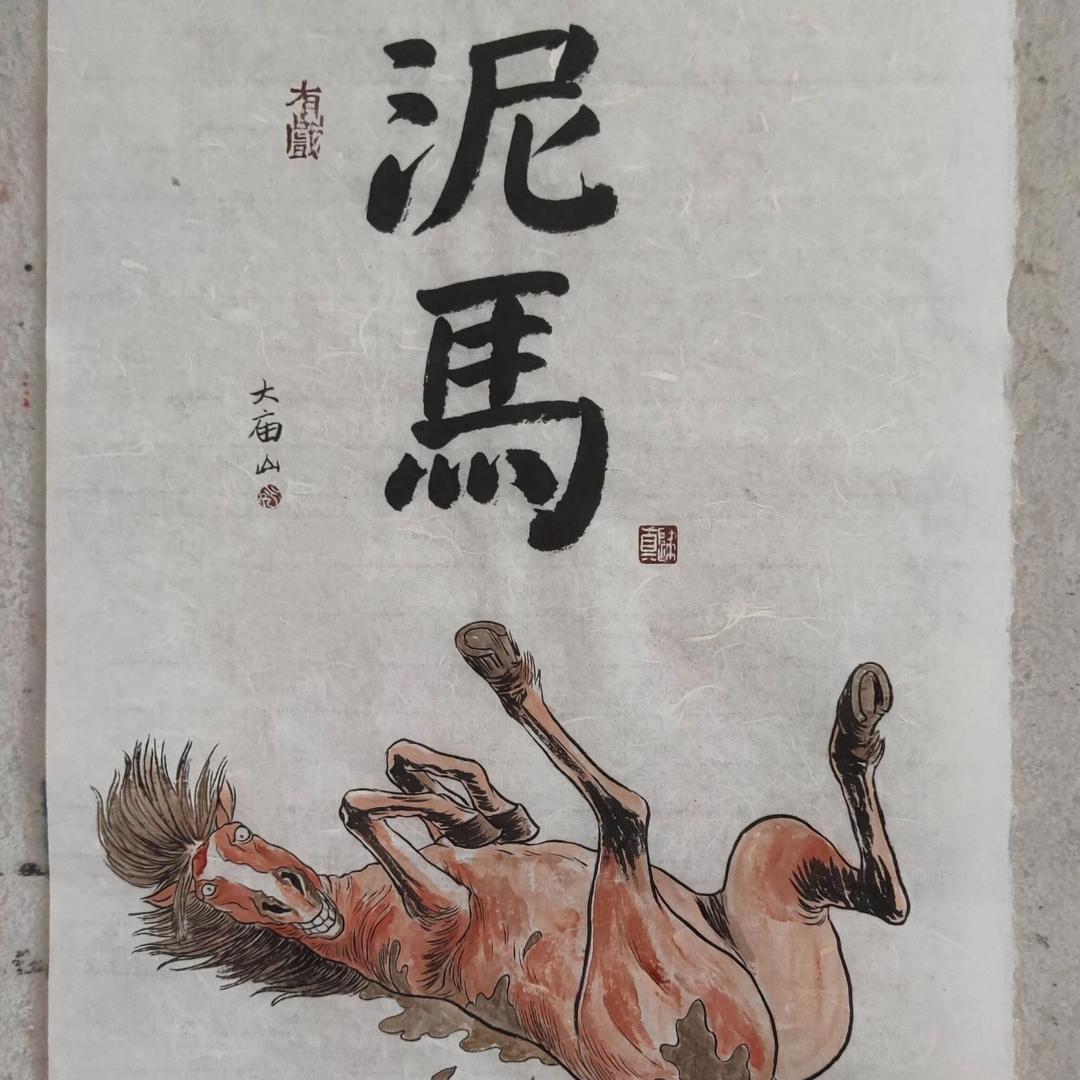 泥馬
有戲
大庙山